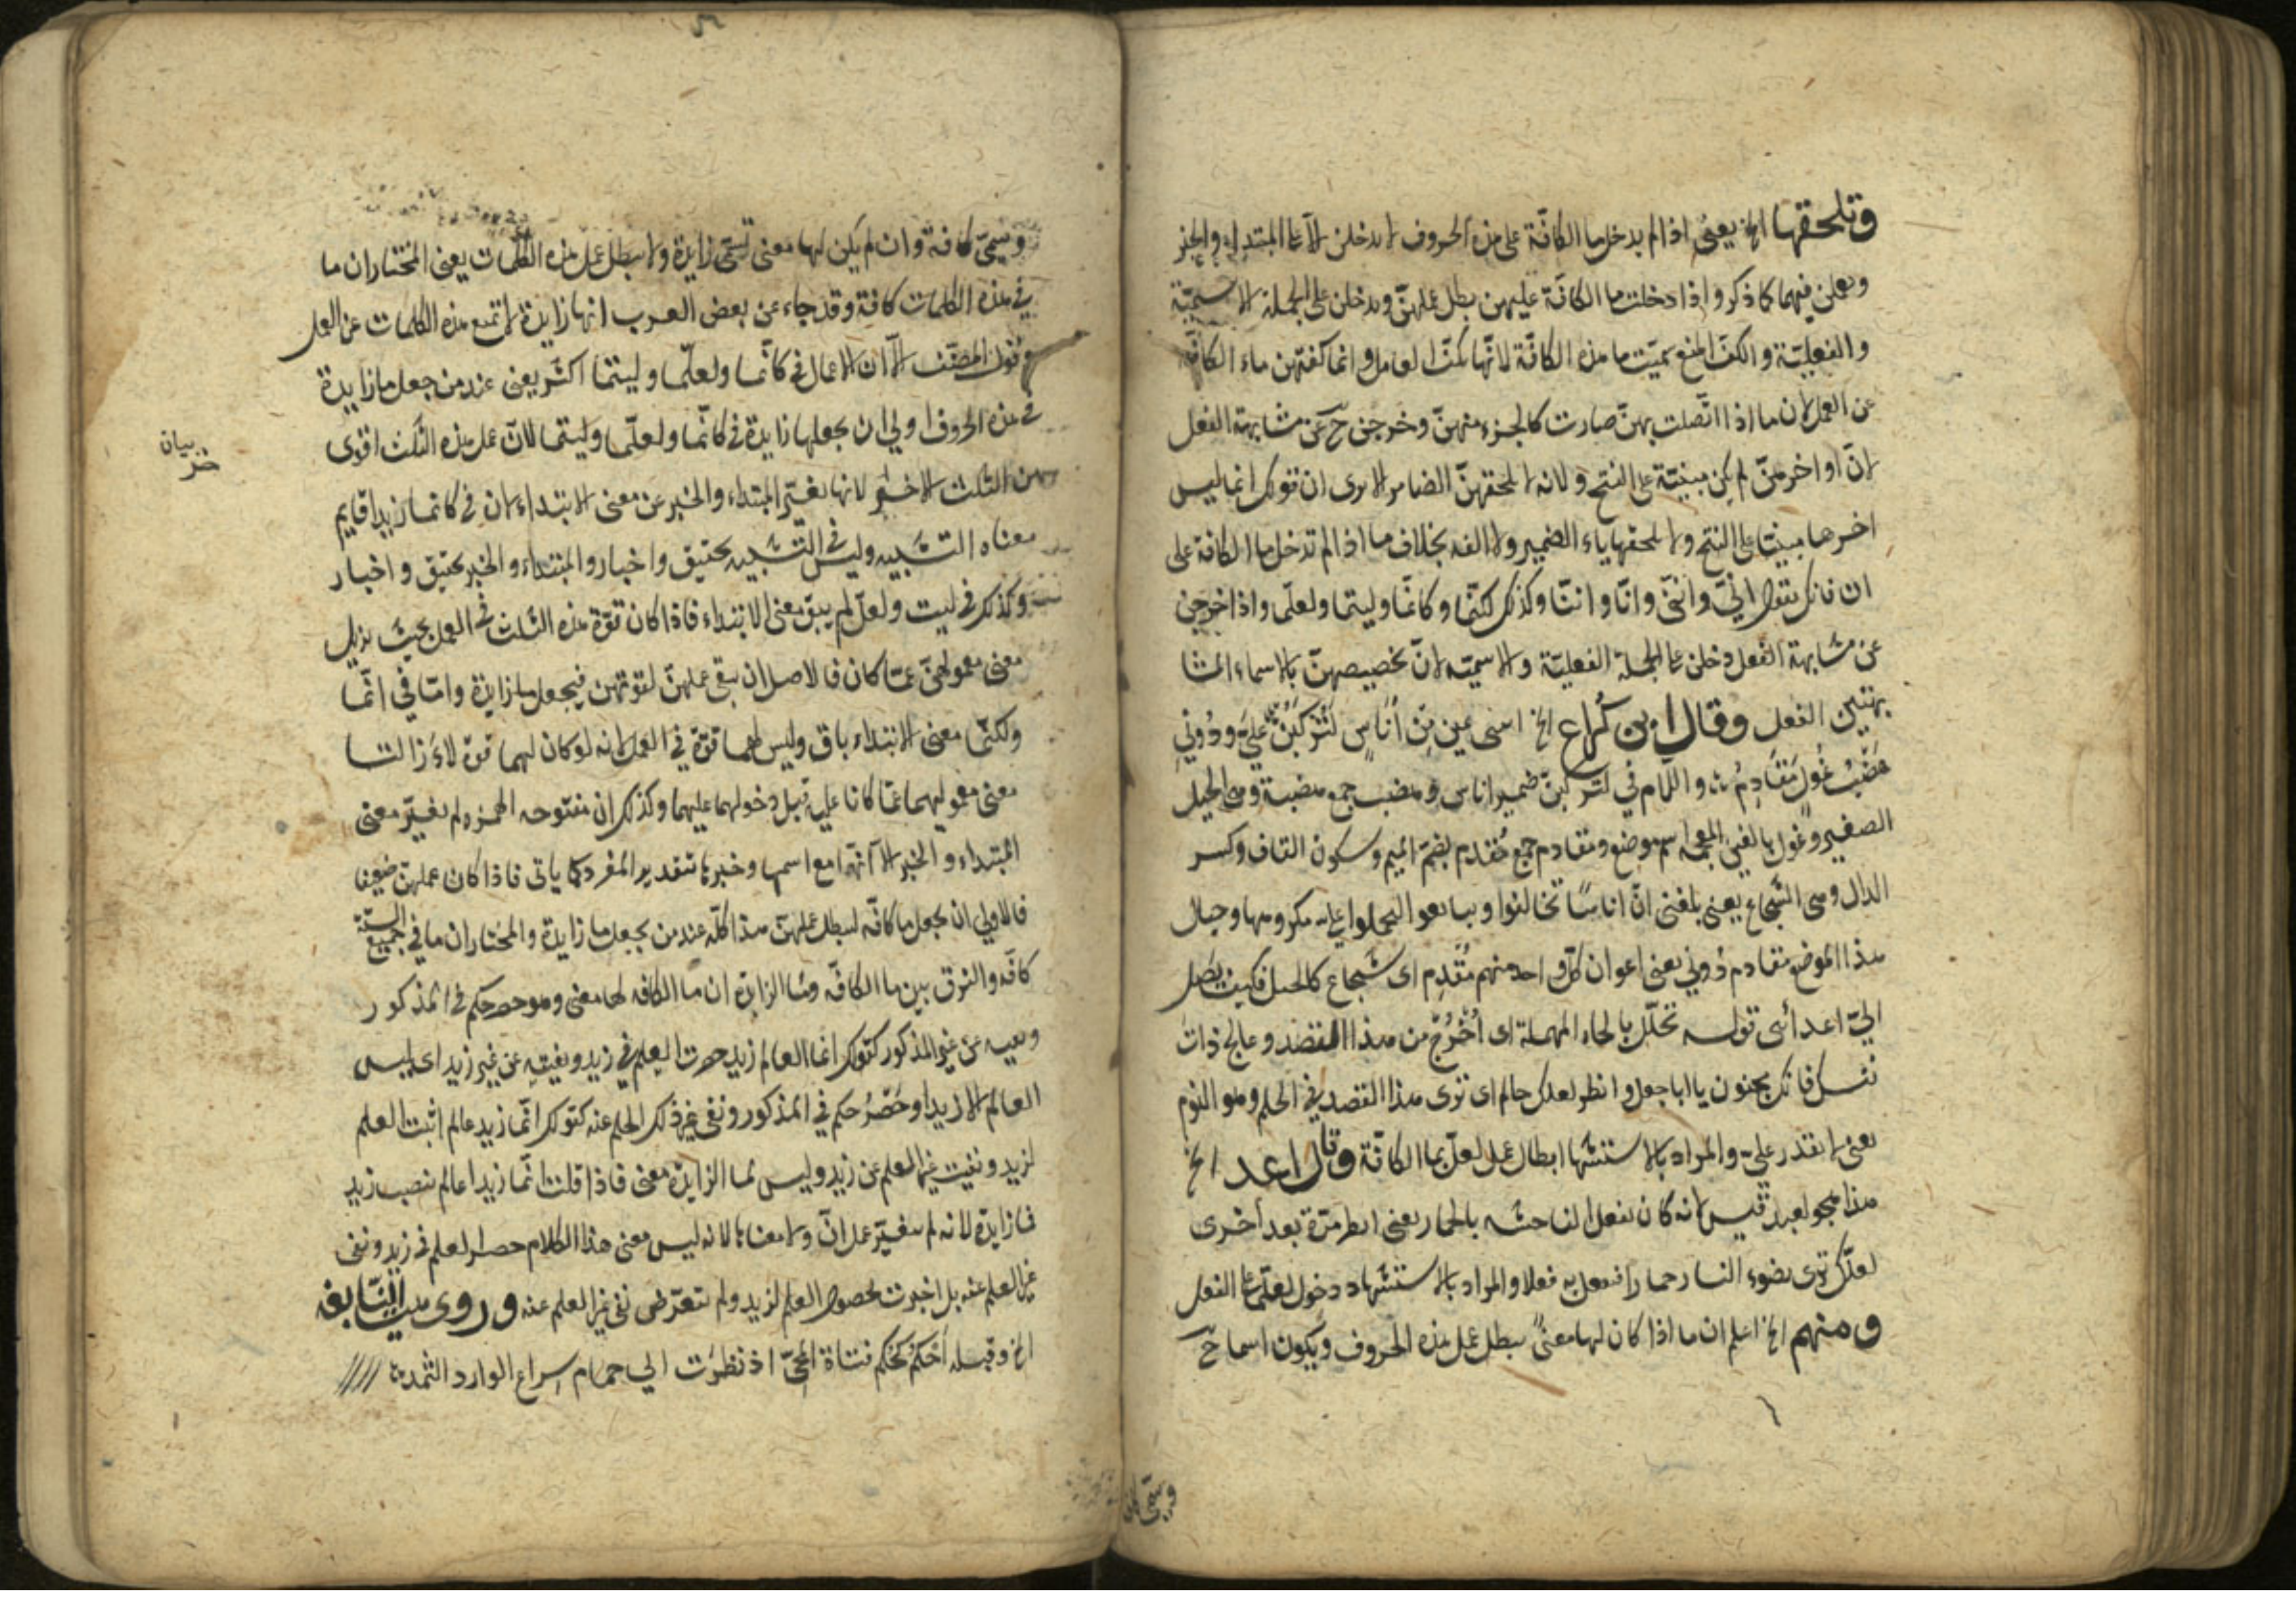 وتلحقها الخ يعني اذا لم يدخل ما الكافّة على هذه الحروف لا يدخلن الا على المبتداء والخبر
ويعملن فيهما كما ذكر واذا دخلت ما الكافّة عليهن بطل عملهنّ ويدخلن على الجملة الاسميّة
والفعليّة والكفّ المنع سمّيت ما هذه الكافّة لانّها كفّت العامل وانما كفتهن ماء الكافّة
عن العمل لان ما اذا اتّصلت بهنّ صارت كالجزء منهنّ وخرجن ح عن مشابهة الفعل
لانّ اواخرهنّ لم يكن مبنيّة على الفتح ولانه لا تلحقهنّ الضماير الا يرى ان قولك انما ليس
اخرها مبنيا على الفتح ولا تلحقها ياء الضمير ولا الفه بخلاف ما اذا لم تدخل ما الكافة على
ان فانك تقول انّي وانّني وانّا واننّا وكذلك لكنّما وكانّما وليتما ولعلّما واذا خرجن
عن مشابهة الفعل دخلن على الجملة الفعليّة والاسميّه لانّ تخصيصهنّ بالاسماء لمشا
بهتهن الفعل وقال ابن كُراع الخ اسى عين مِن أُنَاسٍ لَتَرْكَبُنَّ عليَ ودُوني
هَضْبُ غُولٍ مَقَادِمُ واللام في لتركبنّ ضمير اناس وهضب جمع هضبة وهي الجبل
الصغير وغول بالغين المعجمة اسم موضع ومقادم جمع مُقدم بضمّ الميم وسكون القاف وكسر
الدال وهي الشجاع يعني بلغني انّ اناسًا تحالفوا وبايعوا ليحملوا عليه مكروها وجبال
هذا الموضع مقادم دُوني يعني اعوان كلّ واحد منهم مُقدِم اى شجاع كالجبل فكيف يصل
اليّ اعدائى قوله تحلّل بالحاء المهملة اى اُخْرُجْ من هذا القصد وعالج ذات
نفسك فانك مجنون يا ابا جعل وانظر لعلك حالم اى ترى هذا القصد في الحلم وهو النوم
يعني لا تقدر عليَ والمراد بالاستشها ابطال عمل لعلّ بما الكافّة وقال اعد الخ
هذا هجو لعبد قيس لانه كان يفعل الفاحشه بالحمار يعني انظر مرّة بعد أخرى
لعلّك ترى بضوء النار حمارا فتفعل به فعلا والمراد بالاستشهاد دخول لعلّما على الفعل
ومنهم الخ اعلم ان ما اذا كان لها معنىً يبطل عمل هذه الحروف ويكون اسما ح
وتسمّى كافة
وتسمّى كافة وان لم يكن لها معنى تسمّى زايدة ولا يبطل عمل هذه الكلمات يعني المختار ان ما
في هذه الكلمات كافة وقد جاء عن بعض العرب انها زايدة لا تمنع هذه الكلمات عن العمل
وقول المصنّف الا ان الاعمال في كانّما ولعلّما وليتما اكثر يعني عند من جعل ما زايدة
في هذه الحروف اولي ان يجعلها زايدة في كانّما ولعلّما وليتما لانّ عمل هذه الثلث اقوى
من الثلث الاخر لانها تغيّر المبتداء والخبر عن معنى الابتداء لان في كانما زيدا قايم
معناه التشبيه وليس في التشبيه تحقيق واخبار والمبتداء والخبر تحقيق واخبار
وكذلك في ليت ولعلّ لم يبق معنى الابتداء فاذا كان قوّة هذه الثلث في العمل بحيث يزيل
معنى معمولهنّ عمّا كان فالاصل ان يبقى عملهنّ لقوتهن فيجعل ما زايدة وامّا في انّما
ولكنّما معنى الابتداء باق وليس لهما قوّة في العمل لانه لو كان لهما قوّة لاءَزالتا
معنى معموليهما عمّا كانا عليه قبل دخولهما عليهما وكذلك ان مفتوحه الهمزه لم يغيّر معنى
المبتداء والخبر الا انّها مع اسمها وخبرها بتقدير المفرد كما يأتى فاذا كان عملهنّ ضعيفا
فالاولي ان يجعل ما كافّه ليبطل عملهنّ هذا كلّه عند من يجعل ما زايدة والمختار ان ما في جميع الستّة
كافّه والفرق بين ما الكافّه وما الزايدة ان ما الكافه لها معنى وهو حصر حكم في المذكور
ونفيه عن غير المذكور كقولك انما العالم زيد حصرت العلم في زيد ونفيته عن غير زيد اى ليس
العالم الا زيدا وحَصْرُ حكم في المذكور ونفى غير ذلك الحكم عنه كقولك انّما زيد عالم اثبت العلم
لزيد ونفيت غير العلم عن زيد وليس لما الزايدة معنى فاذا قلت انّما زيدا عالم بنصب زيد
فما زايدة لانه لم يتغيّر عمل انّ ولا معناها لانه ليس معنى هذا الكلام حصر العلم في زيد ونفى
غير العلم عنه بل اخبرت بحصول العلم لزيد ولم تتعرّض نفى غير العلم عنه وروى بيت النّابغه
الخ وقبله أحكُم كحُكم فتاة الحيّ اذ نظرَت الي حمام سِراع الوارد الثمد
بيان
خبر